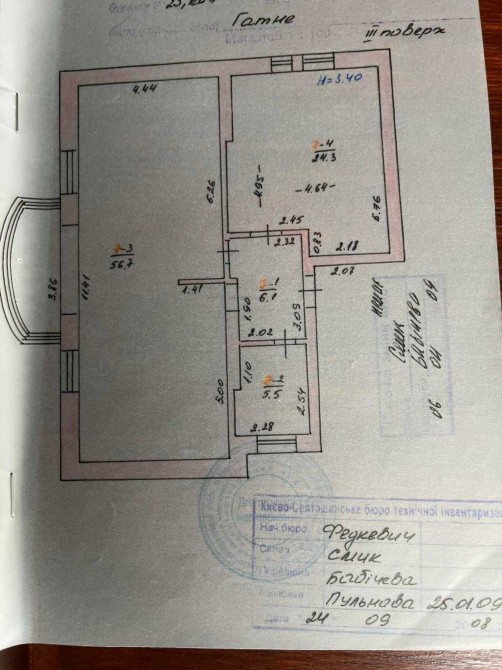 Гатне
III поверх
4.44
H=3.40
-4
24.3
6.26
4.95
-4.64-
5.76
2.45
2.32
0.83
2.18
2.07
-3
56.7
11.41
3.86
1.41
-1
6.1
1.90
3.09
2.02
1.10
-2
5.5
2.54
5.00
2.28
Смик
06 04 09
Києво-Святошинське бюро технічної інвентариза
Нач. бюро Федкевич
Смик
Бабічева
Пульнова 25.01.09
Дата 24 09 2008